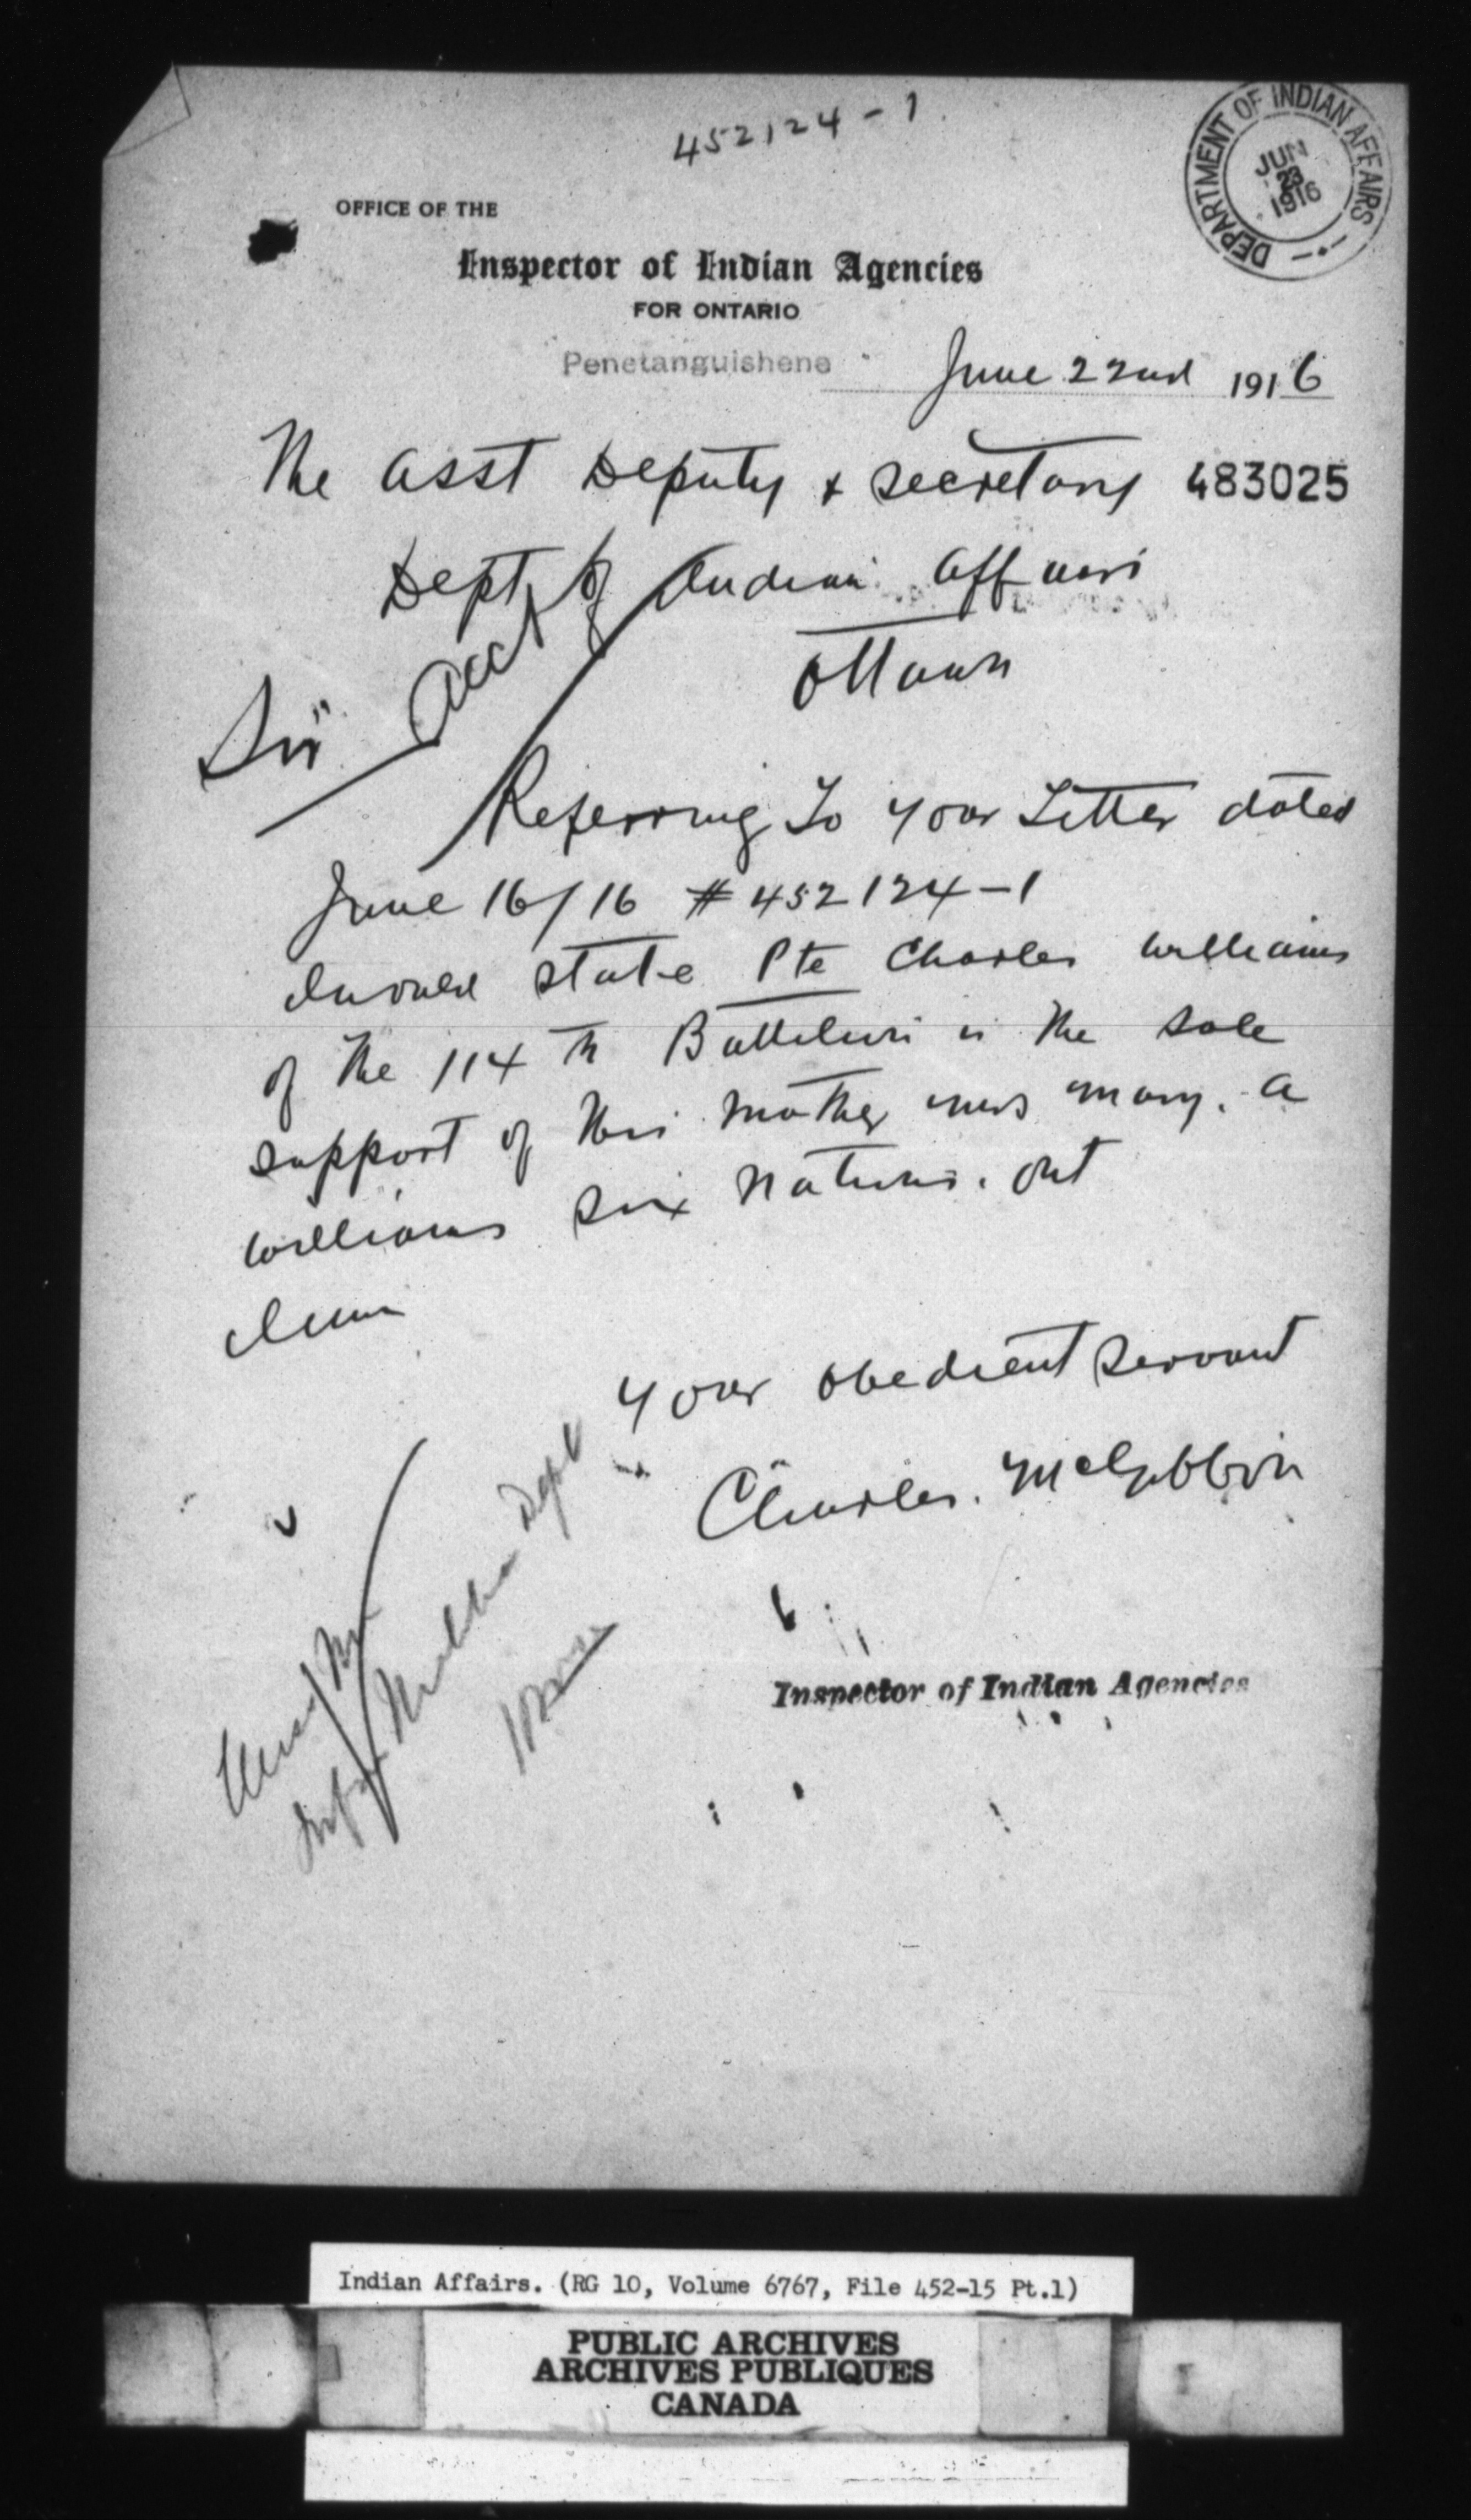 452124-1
DEPARTMENT OF INDIAN AFFAIRS
JUN
23
1916
OFFICE OF THE
Inspector of Indian Agencies
FOR ONTARIO
Penetanguishene June 22nd 1916
The Asst Deputy & Secretary 483025
Dept of Indian Affairs
Ottawa
Acct
Sir
Referring To your Letter dated
June 16/16 # 452124-1
I would state Pte Charles Williams
of the 114th Battalion is the sole
support of his mother mrs mary. A
Williams Six Nations. Ont
I am
Your obedient Servant
Charles. McGibbon
Militia Dept
Inspector of Indian Agencies
Indian Affairs. (RG 10, Volume 6767, File 452-15 Pt.1)
PUBLIC ARCHIVES
ARCHIVES PUBLIQUES
CANADA